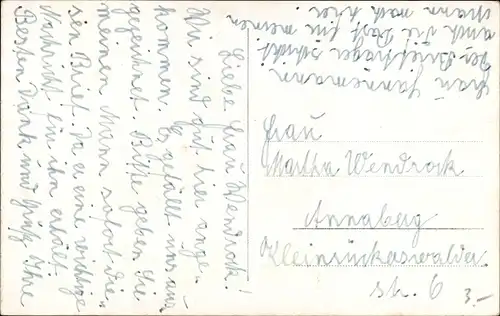 Liebe Frau Wendrock!
Wir sind gut hier ange-
kommen. Es gefällt uns aus-
gezeichnet. Bitte geben Sie
meinen Mann sofort die-
sen Brief. Da er eine wichtige
Nachricht für ihn erhält.
Besten Dank und Grüße Ihre
Frau Sonnemann
Der Briefträger schickt
auch die Post für meinen
Mann nach hier
Frau
Martha Wendrock
Annaberg
Kleinrückerswalder
str. 6
3.-